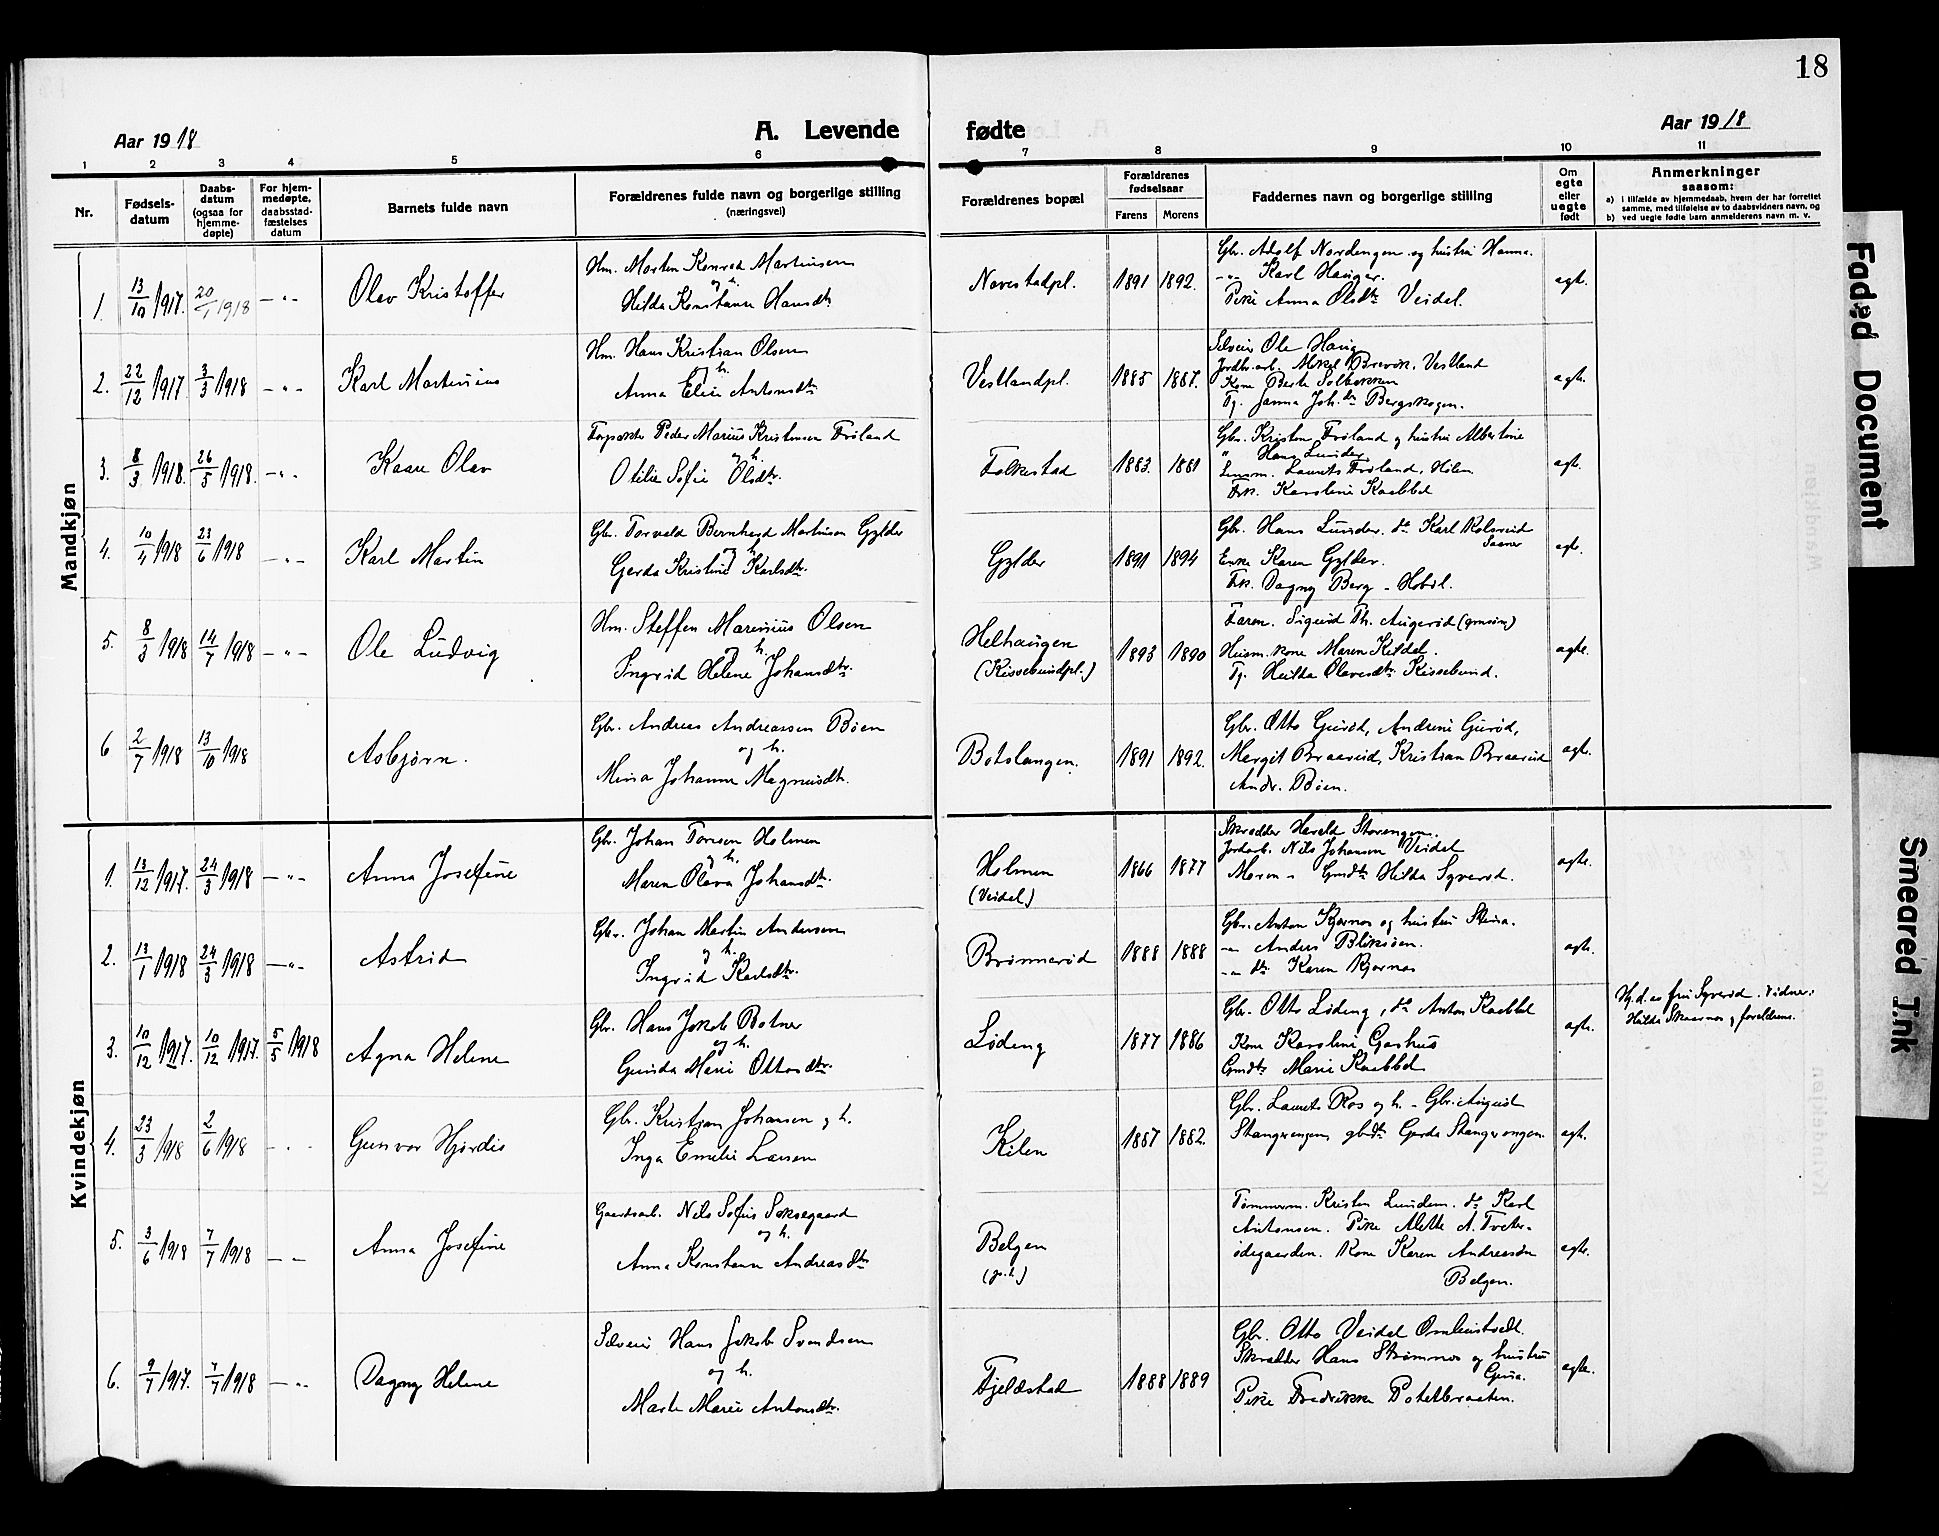 18
Aar 1918
A. Levende fødte
Aar 1918
1 2 3 4 5 6 7 8 9 10 11
Nr.
Fødsels-
datum
Daabs-
datum
(ogsaa for
hjemme-
døpte)
For hjem-
medøpte,
daabsstad-
fæstelses
datum
Barnets fulde navn
Forældrenes fulde navn og borgerlige stilling
(næringsvei)
Forældrenes bopæl
Forældrenes
fødselsaar
Farens Morens
Faddernes navn og borgerlige stilling
Om
egte
eller
uegte
født
Anmerkninger
saasom:
a) i tilfælde av hjemmedaab, hvem der har forrettet
samme, med tilføielse av to daabsvidners navn, og
b) ved uegte fødte barn anmelderens navn m. v.
Mandkjøn
1. 13/10 1917. 20/1 1918 — „ — Olav Kristoffer
Hm. Morten Konrad Martinsen
og h.
Hilda Konstanse Hansdtr
Navestadpl. 1891 1892.
Gbr. Adolf Nordengen og hustru Hanna.
— „ — Karl Hauger.
Pike Anna Olsdtr Veidal.
egte.
2. 22/12 1917 3/3 1918 — „ — Karl Martinius
Hm. Hans Kristian Olsen
og h.
Anna Elise Antonsdtr
Vestlandpl. 1885 1887.
Selveier Ole Haug
Jordbr.arb. Mikal Brevik, Vestland
Kone Berte Solbakken
Tj. Janna Joh.dtr Bergskogen.
egte.
3. 8/3 1918. 26/5 1918. — „ — Kaare Olav
Forpakter Peder Marius Kristensen Frøland
og h.
Otilie Sofie Olsdtr.
Folkestad 1883. 1881
Gbr. Kristen Frøland og hustru Albertine
„ Hans Lunder
Lensm. Laurits Frøland, Hølen
Frk. Karoline Kaabbel
egte.
4. 10/4 1918 23/6 1918 — „ — Karl Martin
Gbr. Torvald Bernhard Martinsen Gylder
og h.
Gerda Kristine Karlsdtr.
Gylder 1891 1894
Gbr. Hans Lunder. do Karl Kolsrud
Saaner
Enke Karen Gylder.
Frk. Dagny Berg – Hobøl.
egte.
5. 8/3 1918 14/7 1918 — „ — Ole Ludvig
Hm. Steffen Marinius Olsen
og h.
Ingrid Helene Johansdtr.
Helhaugen
(Kissebundpl.) 1893 1890
Faren. Sigurd Th. Augerød
Husm. kone Maren Kildal.
Tj. Hulda Olavesdtr. Kissebund.
egte.
6 2/7 1918 13/10 1918 Asbjørn.
Gbr. Andreas Andreassen Bøen
og h.
Mina Johanne Magnusdtr.
Botslangen. 1891 1892.
Gbr. Otto Gurød, Andrine Gurød,
Margit Braarud, Kristian Braarud
Andr. Bøen.
egte.
Kvindekjøn
1. 13/12 1917. 24/3 1918 — „ — Anna Josefine
Gbr. Johan Torsen Holmen
og h.
Maren Olava Johansdtr.
Holmen
(Veidal) 1866 1877
Skrædder Harald Storengen.
Jordarb. Nils Johansen Veidal
Moren – Gmdtr Hilda Syverød.
egte.
2. 13/1 1918 24/3 1918 — „ — Astrid
Gbr. Johan Martin Andersen
og h.
Ingrid Karlsdtr.
Brønnerød 1888 1888
Gbr. Anton Kjærnes og hustru Stina.
— „ — Anders Bliksøen.
— „ — dtr. Karen Kjærnes
egte.
3. 10/12 1917. 10/12 1917. 5/5 1918 Agna Helene
Gbr. Hans Jakob Botner
og h.
Gunda Marie Ottosdtr.
Løding 1877 1886
Gbr. Otto Løding, do Anton Kaabbel
Kone Karoline Gashus
Gmdtr Marie Kaabbel
egte.
Hj.d. av fru Syverød. Vidner:
Hulda Skaarnes og forældrene.
4. 23/3 1918 2/6 1918 Gunvor Hjørdis
Gbr. Kristian Johansen og h.
Inga Emelie Larsen
Kilen 1887 1882.
Gbr. Laurits Ros og h. – Gbr. August
Stangerengen, gbdtr Gerda Stangerengen.
egte.
5. 3/6 1918 7/7 1918 — — Anna Josefine
Gaardsarb. Nils Sofus Saksegaard
og h.
Anna Konstanse Andreasdtr
Belgen 
Tømmerm. Kristen Lundem. do Karl
Antonsen. Pike Alette A. Tveter-
ødegaarden. Kone Karen Andreasen
Belgen.
egte.
6. 9/7 1917. 7/7 1918 — „ — Dagny Helene
Selveier Hans Jakob Svendsen
og h.
Marte Marie Antonsdtr.
Fjeldstad 1888 1889
Gbr. Otto Veidal Omlinstvedt.
Skrædder Hans Strømnes og hustru
Gina.
Pike Fredrikke Potetbraaten.
egte.
Faded Document
Smeared Ink